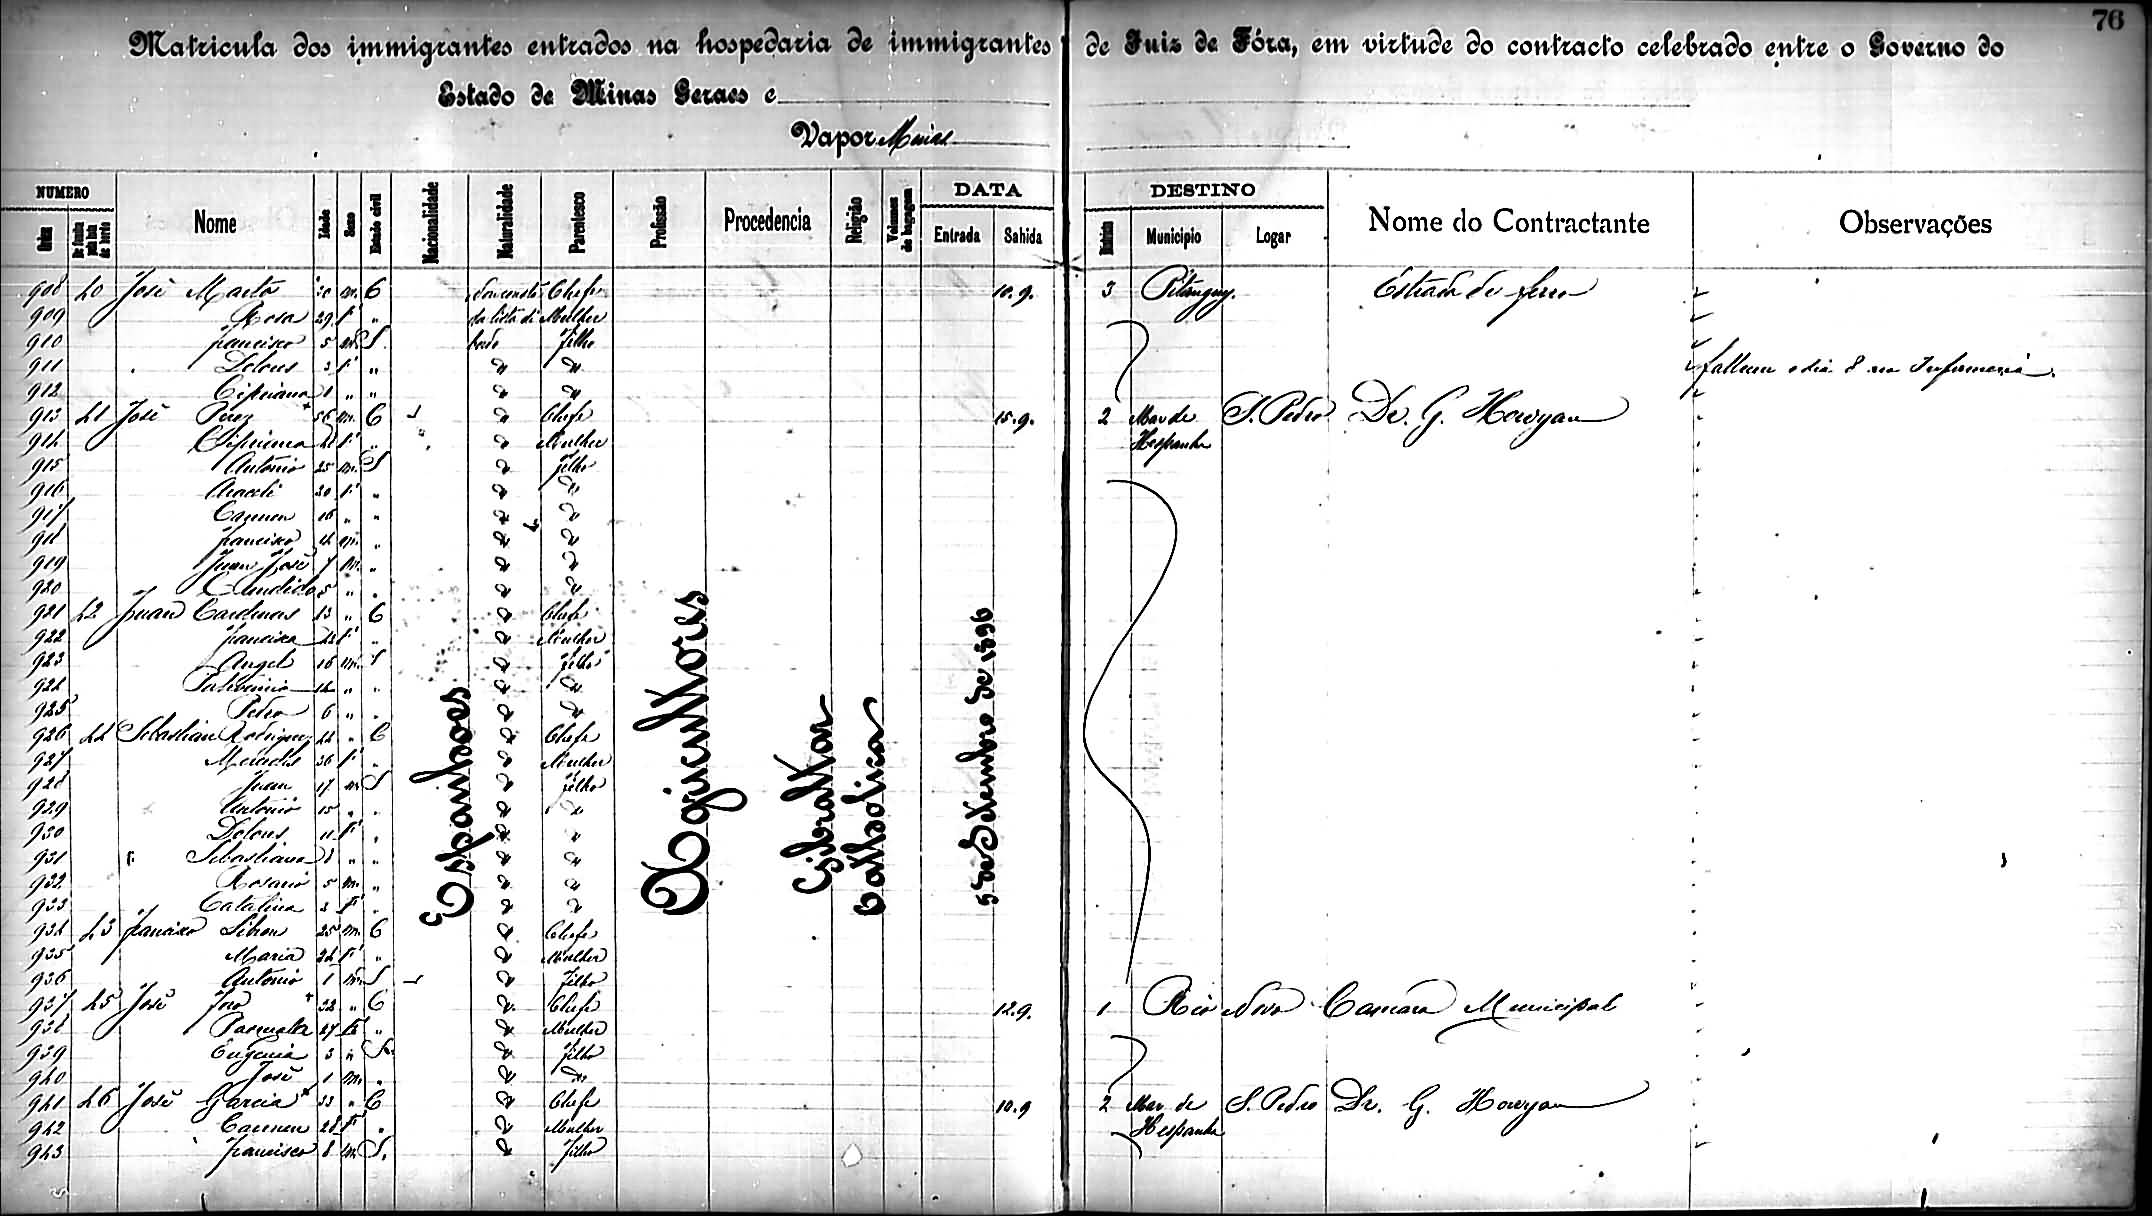 76
Matricula dos immigrantes entrados na hospedaria de immigrantes de Juiz de Fóra, em virtude do contracto celebrado entre o Governo do
Estado de Minas Geraes e
Vapor
NUMERO Nome Idade Sexo Estado civil Nacionalidade Naturalidade Parentesco Profissão Procedencia Religião Volumes de bagagem DATA DESTINO Nome do Contractante Observações
Ordem De familia pela lista de bordo Entrada Sahida Districto Municipio Logar
Espanhoes Agricultores Gibraltar Catholica 5 de Setembro de 1896
908 40 José 30 m. C Não consta Chefe 10.9. 3 Pitanguy. Estrada de ferro
909 Rosa 29 f " da lista de Mulher
910 Francisco 5 m. S. bordo Filho
911 Dolores 3 f " " " falleceu o dia 8 na Infermeria.
912 Cipriana 1 " " " "
913 41 José Perez 56 m. C " Chefe 15.9. 2 Mar de S. Pedro Dr. G.
914 f " " Mulher Hespanha
915 Antonio 25 m. S " Filho
916 Araceli 20 f " " "
917 Carmen 16 " " " "
918 Francisco 14 m. " " "
919 Juan José 7 m. " " "
920 Candido 5 " " " "
921 42 Juan Cardenas " C " Chefe
922 Francisca 42 f " " Mulher
923 Angel 16 m. S " Filho
924 14 " " " "
925 Pedro 6 " " " "
926 44 Sebastian Rodriguez 44 " C " Chefe
927 Mercedes 36 f " " Mulher
928 Juan 17 m S " Filho
929 Antonio 15 " " " "
930 Dolores 11 f " " "
931 Sebastiana 8 " " " "
932 Rosario 5 m. " " "
933 Catalina 3 f " " "
934 43 Francisco 25 m. C " Chefe
935 Maria 24 f " " Mulher
936 Antonio 1 m. S " Filho
937 45 José 32 " C " Chefe 12.9. 1 Rio Novo Camara Municipal
938 27 f " " Mulher
939 Eugenia 3 " S. " Filho
940 José 1 m. " " "
941 46 José Garcia 33 " C " Chefe 10.9 2 Mar de S. Pedro Dr. G.
942 Carmen 28 f " " Mulher Hespanha
943 Francisco 8 m. S. " Filho